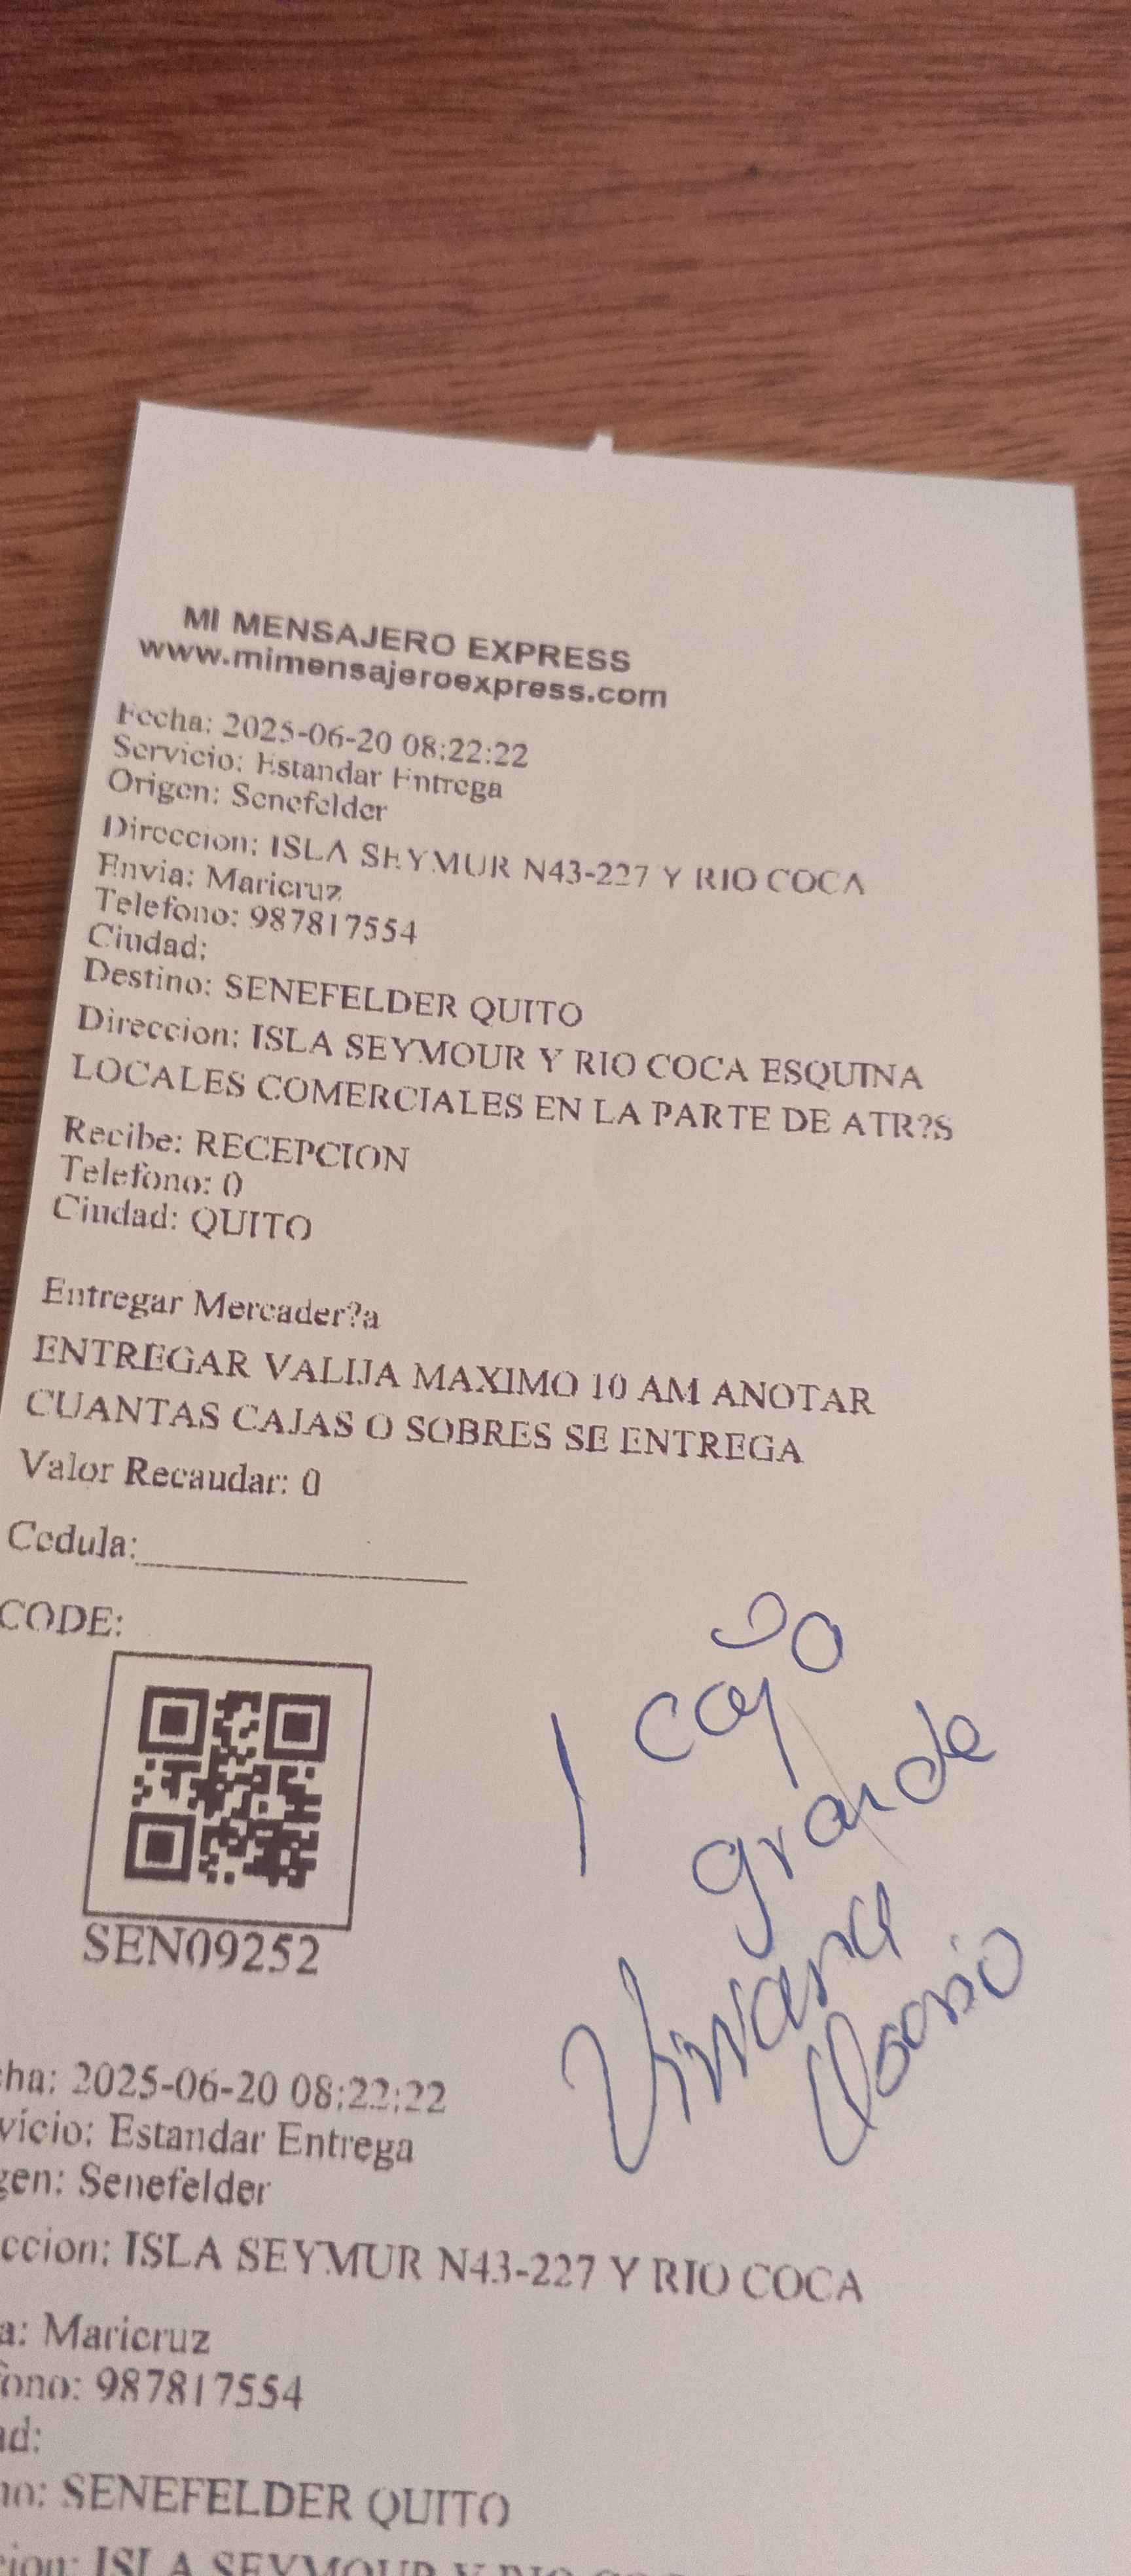 MI MENSAJERO EXPRESS
www.mimensajeroexpress.com
Fecha: 2025-06-20 08:22:22
Servicio: Estandar Entrega
Origen: Senefelder
Direccion: ISLA SEYMUR N43-227 Y RIO COCA
Envia: Maricruz
Telefono: 987817554
Ciudad:
Destino: SENEFELDER QUITO
Direccion: ISLA SEYMOUR Y RIO COCA ESQUINA
LOCALES COMERCIALES EN LA PARTE DE ATR?S
Recibe: RECEPCION
Telefono: 0
Ciudad: QUITO
Entregar Mercader?a
ENTREGAR VALIJA MAXIMO 10 AM ANOTAR
CUANTAS CAJAS O SOBRES SE ENTREGA
Valor Recaudar: 0
Cedula:
CODE:
1 caja
grande
Viviana
Osorio
SEN09252
cha: 2025-06-20 08:22:22
vicio: Estandar Entrega
gen: Senefelder
ccion: ISLA SEYMUR N43-227 Y RIO COCA
a: Maricruz
fono: 987817554
ad:
no: SENEFELDER QUITO
cion: ISLA SEYMOUR Y RIO